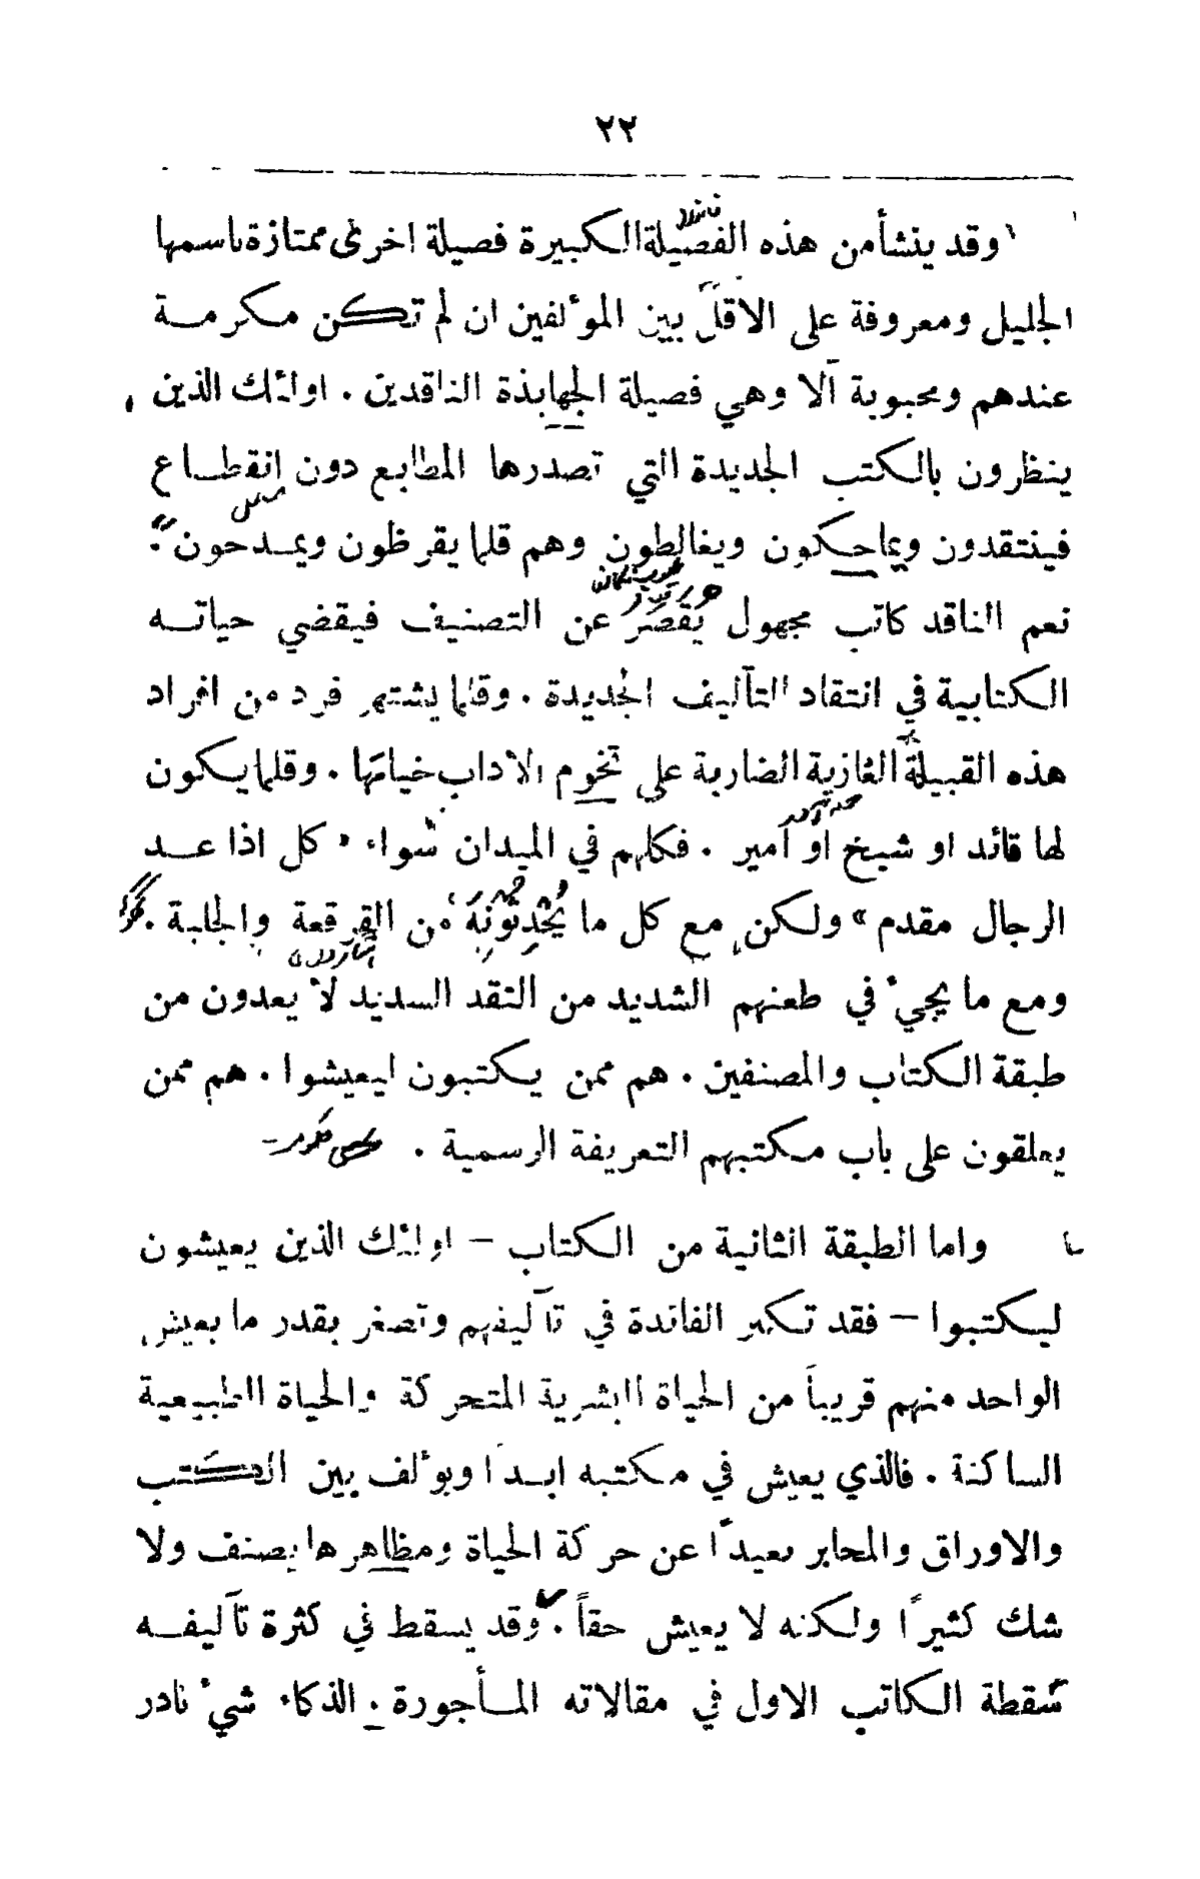 ٢٢
وقد ينشأ من هذه الفصيلة الكبيرة فصيلة اخرى ممتازة باسمها
الجليل ومعروفة على الاقل بين المؤلفين ان لم تكن مكرمة
عندهم ومحبوبة آلا وهي فصيلة الجهابذة الناقدين . اولئك الذين
ينظرون بالكتب الجديدة التي تصدرها المطابع دون انقطاع
فينتقدون ويماحكون ويغالطون وهم قلما يقرظون ويمدحون .
نعم الناقد كاتب مجهول يُقصِّر عن التصنيف فيقضي حياته
الكتابية في انتقاد التآليف الجديدة . وقلما يشتهر فرد من افراد
هذه القبيلة الغازية الضاربة على تخوم الاداب خيامها . وقلما يكون
لها قائد او شيخ او امير . فكلهم في الميدان سواء « كل اذا عد
الرجال مقدم » ولكن مع كل ما يُحْدِثُونَهُ من القرقعة والجلبة .
ومع ما يجيء في طعنهم الشديد من النقد السديد لا يعدون من
طبقة الكتاب والمصنفين . هم ممن يكتبون ليعيشوا . هم ممن
يعلقون على باب مكتبهم التعريفة الرسمية .
واما الطبقة الثانية من الكتاب – اولئك الذين يعيشون
ليكتبوا – فقد تكبر الفائدة في تآليفهم وتصغر بقدر ما يعيش
الواحد منهم قريباً من الحياة البشرية المتحركة والحياة الطبيعية
الساكنة . فالذي يعيش في مكتبه ابداً ويؤلف بين الكتب
والاوراق والمحابر بعيداً عن حركة الحياة ومظاهرها يصنف ولا
شك كثيراً ولكنه لا يعيش حقاً . وقد يسقط في كثرة تآليفه
سقطة الكاتب الاول في مقالاته المأجورة . الذكاء شيء نادر